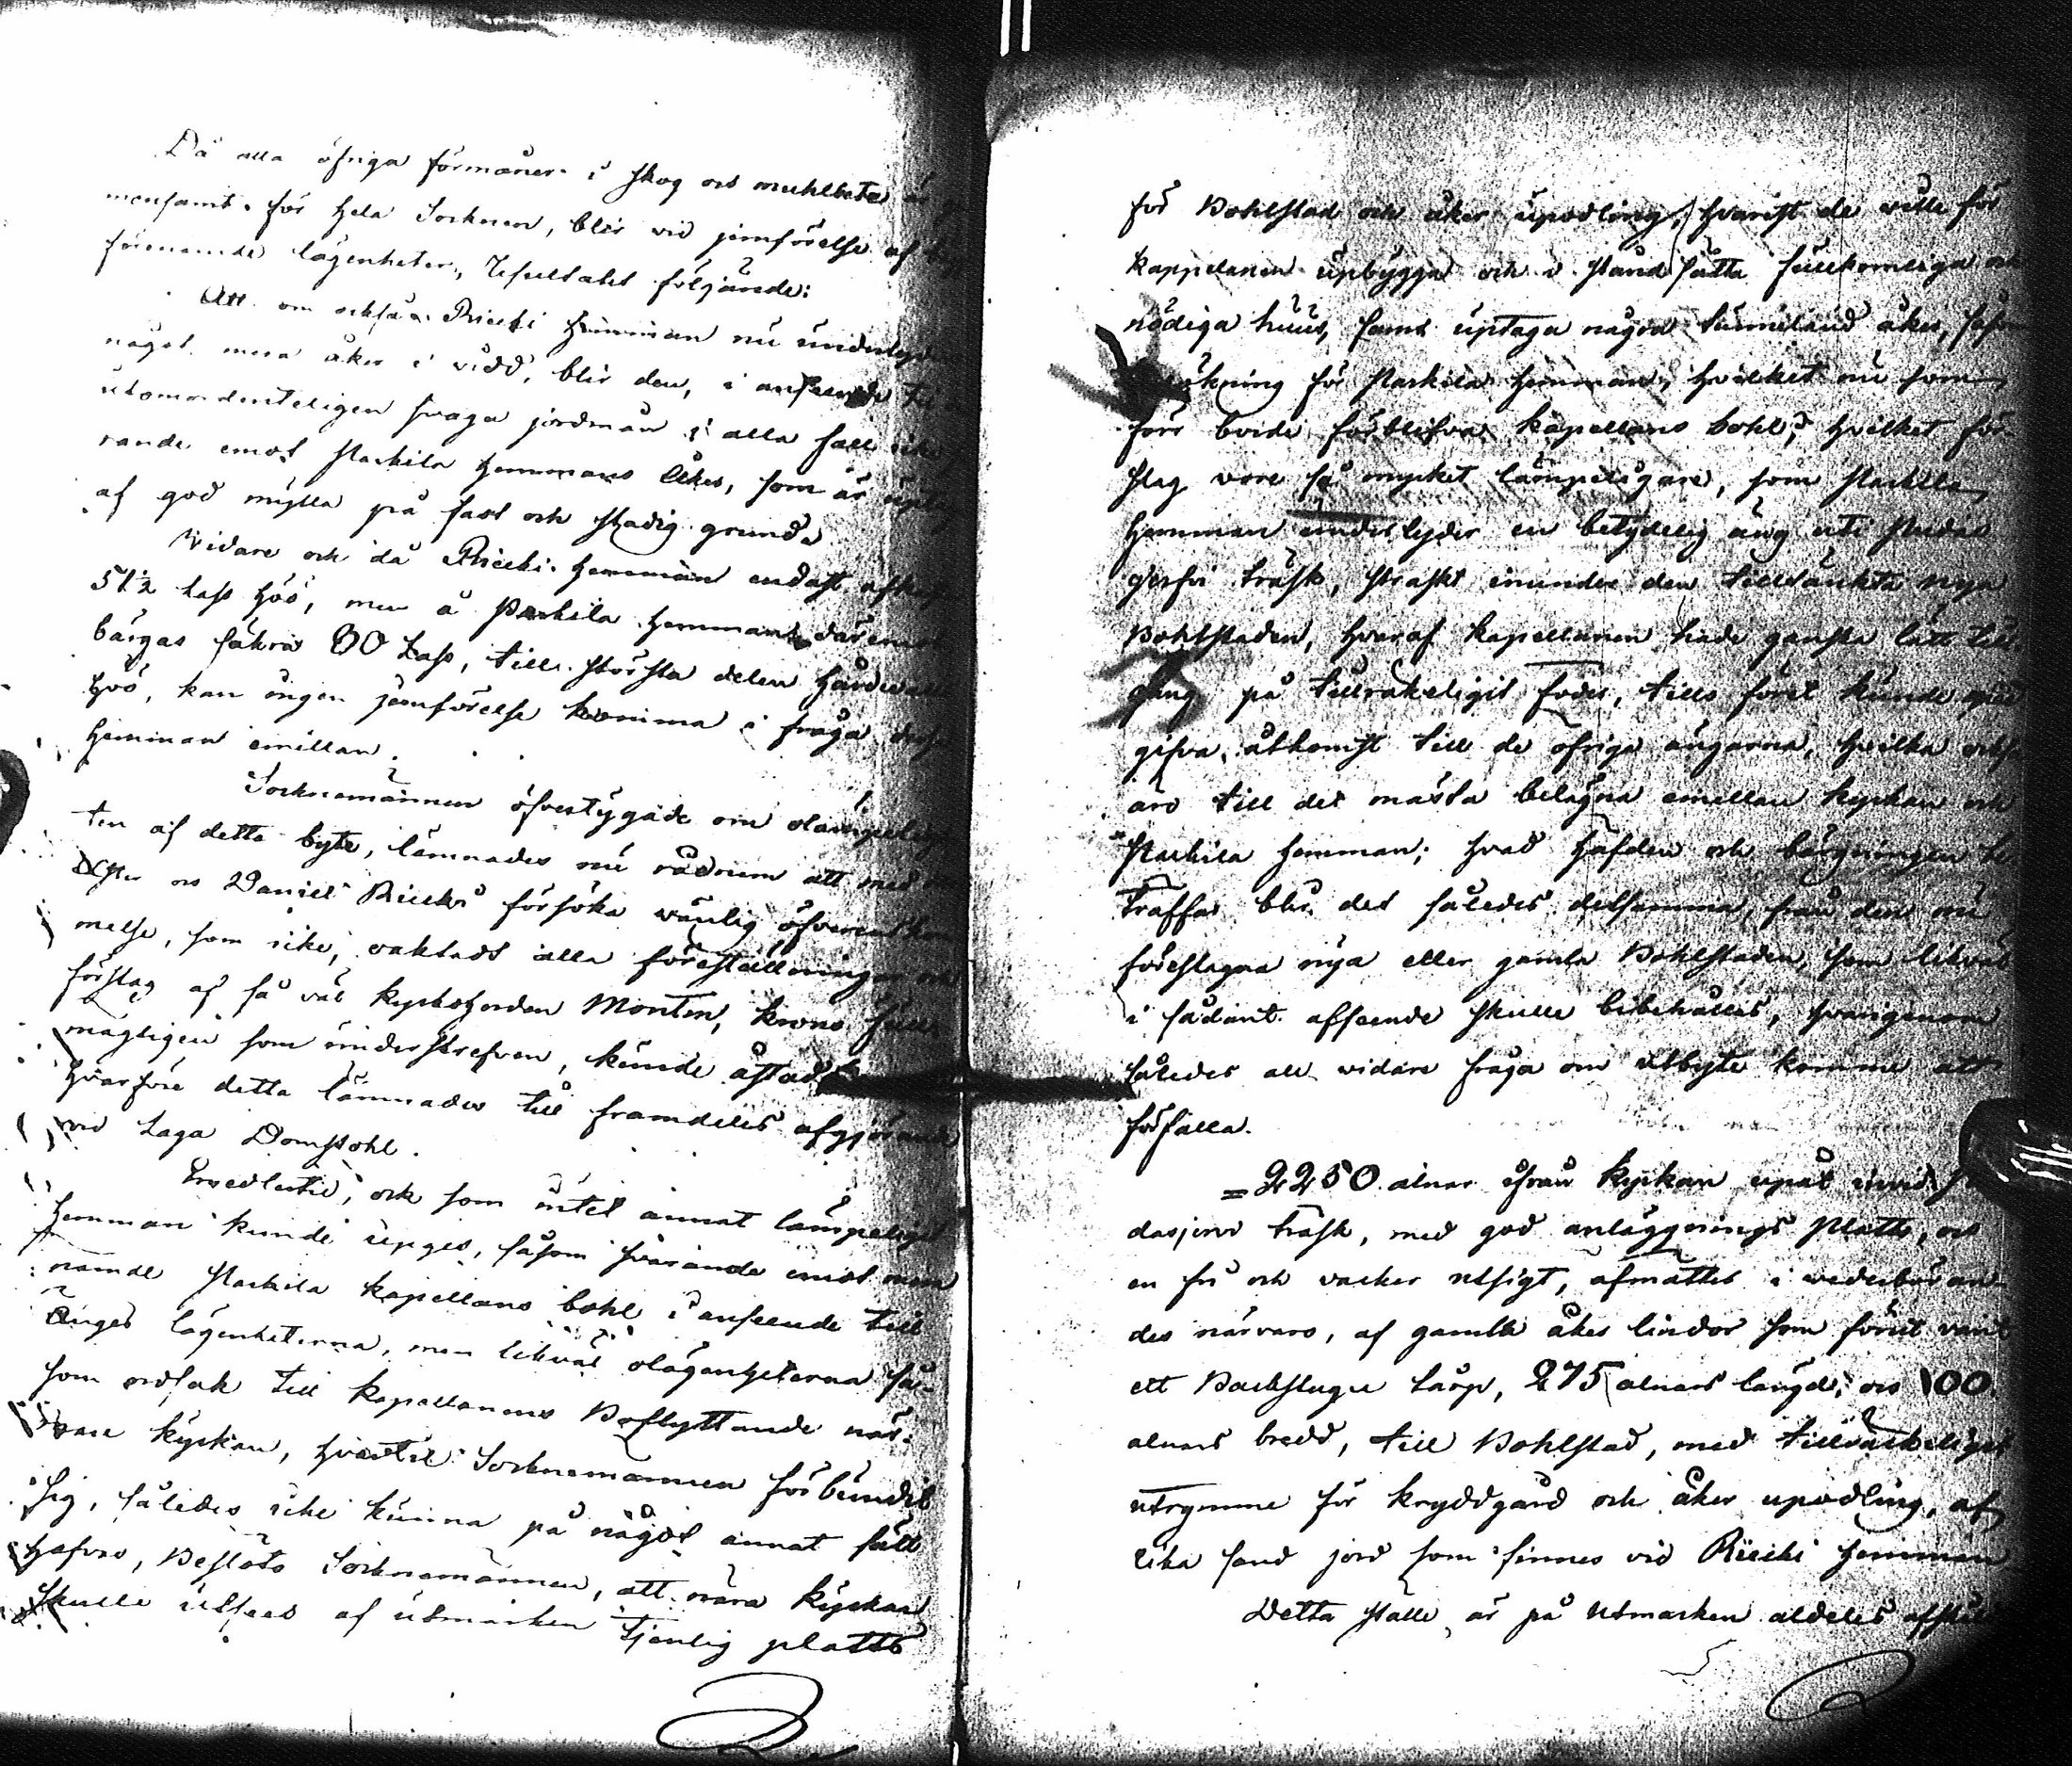 Då alla öfriga förmåner i skog och muhlbete är
mensamt för hela Socknen, blir vid jemförelse af
förenemde lägenheter, Resultatet följande:
Att om också Riecki hemman nu underlyder
något mera åker i vidd, blir den, i anseende till
utomordenteligen svaga jordmån i alla fall icke
rande emot Markila hemmans åker, som är
af god mylla på fast och stadig grund.
Vidare och då Riecki hemman endast
51½ lass höö, men å Markila hemman däremot
bärgas säkra 80 Lass, till största delen hårdvalls
höö, kan ingen jemförelse komma i fråga dessa
hemman emillan.
Socknemännen öfvertygade om olämpelig
ten af detta byte, lämnades nu rådrum att med
och Daniel Riecki försöka vänlig öfverenskom
melse, som icke, oaktadt alla föreställningar och
förslag af så väl kyrkoherden Monten, krono
mägtigen som underskrefven, kunde åstad
hvarföre detta lämnades till framdeles afgjörande
vid Laga Domstohl.
och som intet annat lämpeligit
hemman kunde upges, såsom svarande emot men
nämde Markila kapellans bohl i anseende till
Änges lägenheterna, men likväl olägenheterna så-
som orsak till kapellanens Boflyttande när-
mare kyrkan, hvartil Socknemännen förbundit
sig, således icke kunna på något annat sätt
hafvas, Beslöts Socknemännen, att nära kyrkan
skulle utses af utmarken tjenlig platts
för Bohlstad och åker upodling, hvarest de ville för
kappelanen upbygga och i stand sätta fullkomliga och
nödiga huus, samt uptaga några tunneland åker, såsom
ökning för Markila hemman, hvilket nu som
förr borde förblifva kapellans bohl; hvilket för-
slag vore så mycket lämpeligare, som Markila
hemman underlyder en betydelig äng uti
jerfvi träsk, straxt inunder den tilltänkta nya
Bohlstaden, hvaraf kapellanen hade ganska lätt till-
gång på tillräkeligit foder, tills föret kunde med
gifva åtkomst till de öfriga ängarna, hvilka också
äro till det mästa belägna emellan kyrkan och
Markila hemman; hvad häfden och bärgningen be-
träffar blir det således detsamma, från den nu
föreslagna nya eller gamla Bohlstaden, som likväl
i sådant afseende skulle bibehållas, hvarigenom
således all vidare fråga om utbyte komme att
förfalla.
=2250 alnar ifrån kyrkan upåt invid
dasjervi träsk, med god anläggnings Platts, och
en fri och vacker utsigt, afmättes i wederböran-
des närvaro, af gamla åker lindor som förut varit
ett Backstugu tårp, 275 alnars längd, och 100
alnars bredd, till Bohlstad, med tillräckeligit
utrymme för kryddgård och åker upodling, af
lika sand jord som finnes vid Riecki hemman
Detta ställe är på Utmarken aldeles afskil